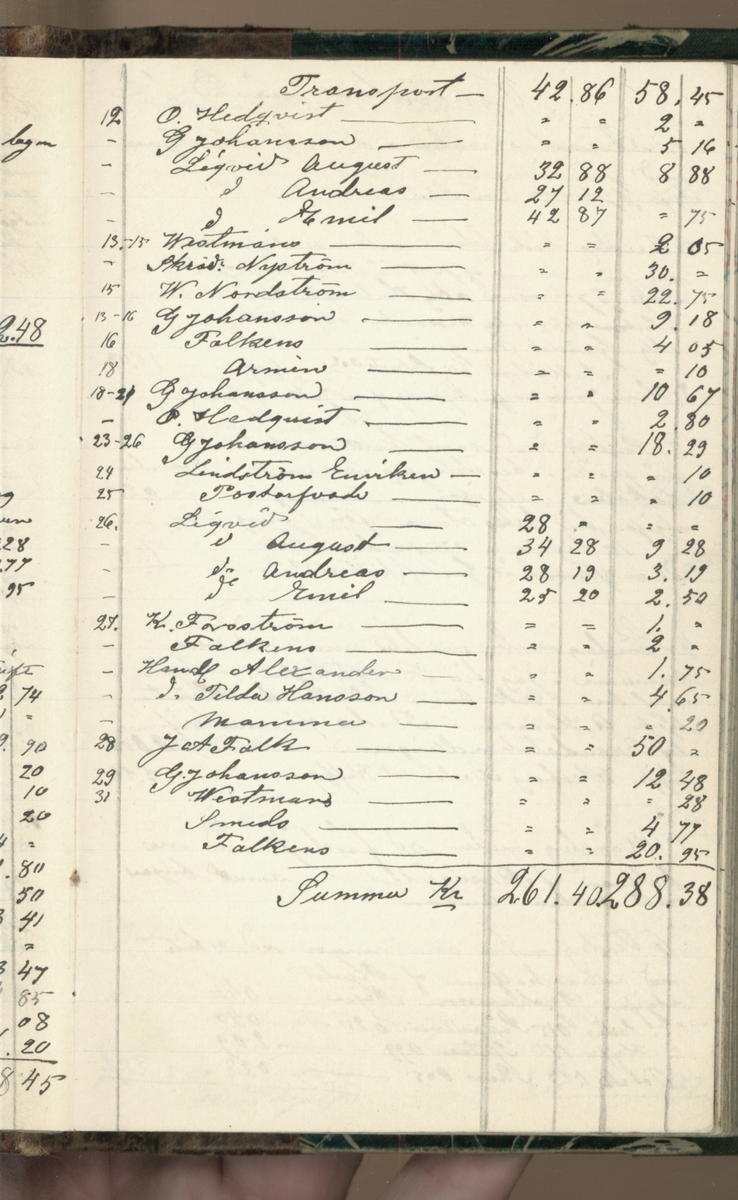 Transport — 42.86 58.45
12 O. Hedqvist — " " 2 "
– G Johansson — " " 5 16
– Liqvid August — 32 88 8 88
– d Andreas — 27 12
– d Emil — 42 87 " 75
13-15 Westmans — " " 2 05
– Skräd. Nyström — " " 30. "
15 W. Nordström — " " 22.75
13-16 G Johansson — " " 9.18
16 Falkens — " " 4 05
18 Armén — " " " 10
18-21 G Johansson — " " 10 67
– O. Hedquist — " " 2.80
23-26 G Johansson — " " 18.29
24 Lindström Enviken — " " " 10
25 — " " " 10
26. Liqvid — 28 " " "
– d August — 34 28 9 28
– d:o Andreas — 28 19 3.19
– d:o Emil — 25 20 2.50
27. K. Forsström — " " 1. "
– Falkens — " " 2 "
– Handl Alexander — " " 1.75
– d. Tilda Hansson — " " 4.65
– Mamma — " " " 20
28 J A Falk — " " 50 "
29 G Johansson — " " 12 48
31 Westmans — " " " 28
Smeds — " " 4 77
Falkens — " " 20.95
Summa Kr 261.40 288.38
2.48
28
277
95
74
"
90
20
10
20
"
80
50
41
"
47
85
08
.20
8 45